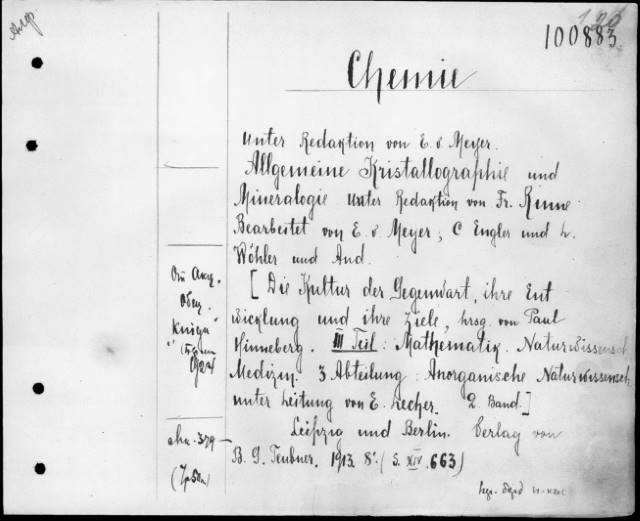 100883
Chemie
Unter Redaktion von E. v Meyer.
Allgemeine Kristallographie und
Mineralogie unter Redaktion von Fr. Rinne
Bearbeitet von E. v Meyer; C Engler und L.
Wöhler und And.
[Die Kultur der Gegenwart, ihre Ent
wicklung und ihre Ziele, hrsg. von Paul
Hinneberg. III Teil: Mathematik. Naturwissensch
Medizin. 3 Abteilung: Anorganische Naturwissensch
unter Leitung von E. Lecher. 2. Band.]
Leipzig und Berlin. Verlag von
B. G. Teubner. 1913. 8º. (S. XIV. 663)
Книга